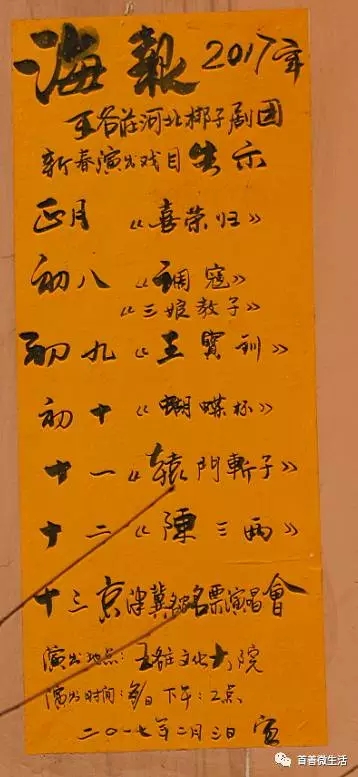 海報 2017年
谷庄河北梆子剧团
新春演出戏目告示
正月 《喜荣归》
初八 《调寇》
《三娘教子》
初九 《王寳钏》
初十 《蝴蝶杯》
十一《辕門斬子》
十二《陳三两》
十三京津冀名家名票演唱會
演出地点:文化大院
演出时间:每日下午:2点
二〇一七年二月三日 宣
首善微生活